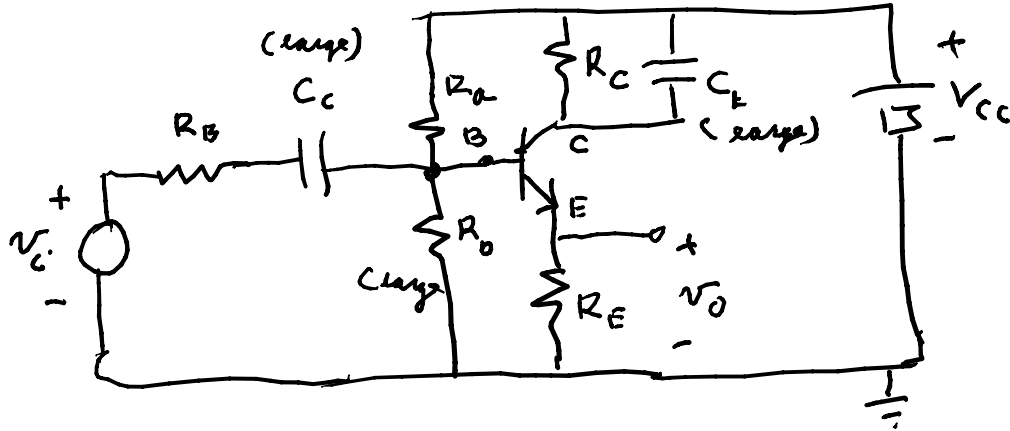 (large)
C_c
R_B
R_a
B
R_C
C_k
(large)
C
+
V_CC
-
+
v_i
-
R_b
(large
E
R_E
+
v_o
-